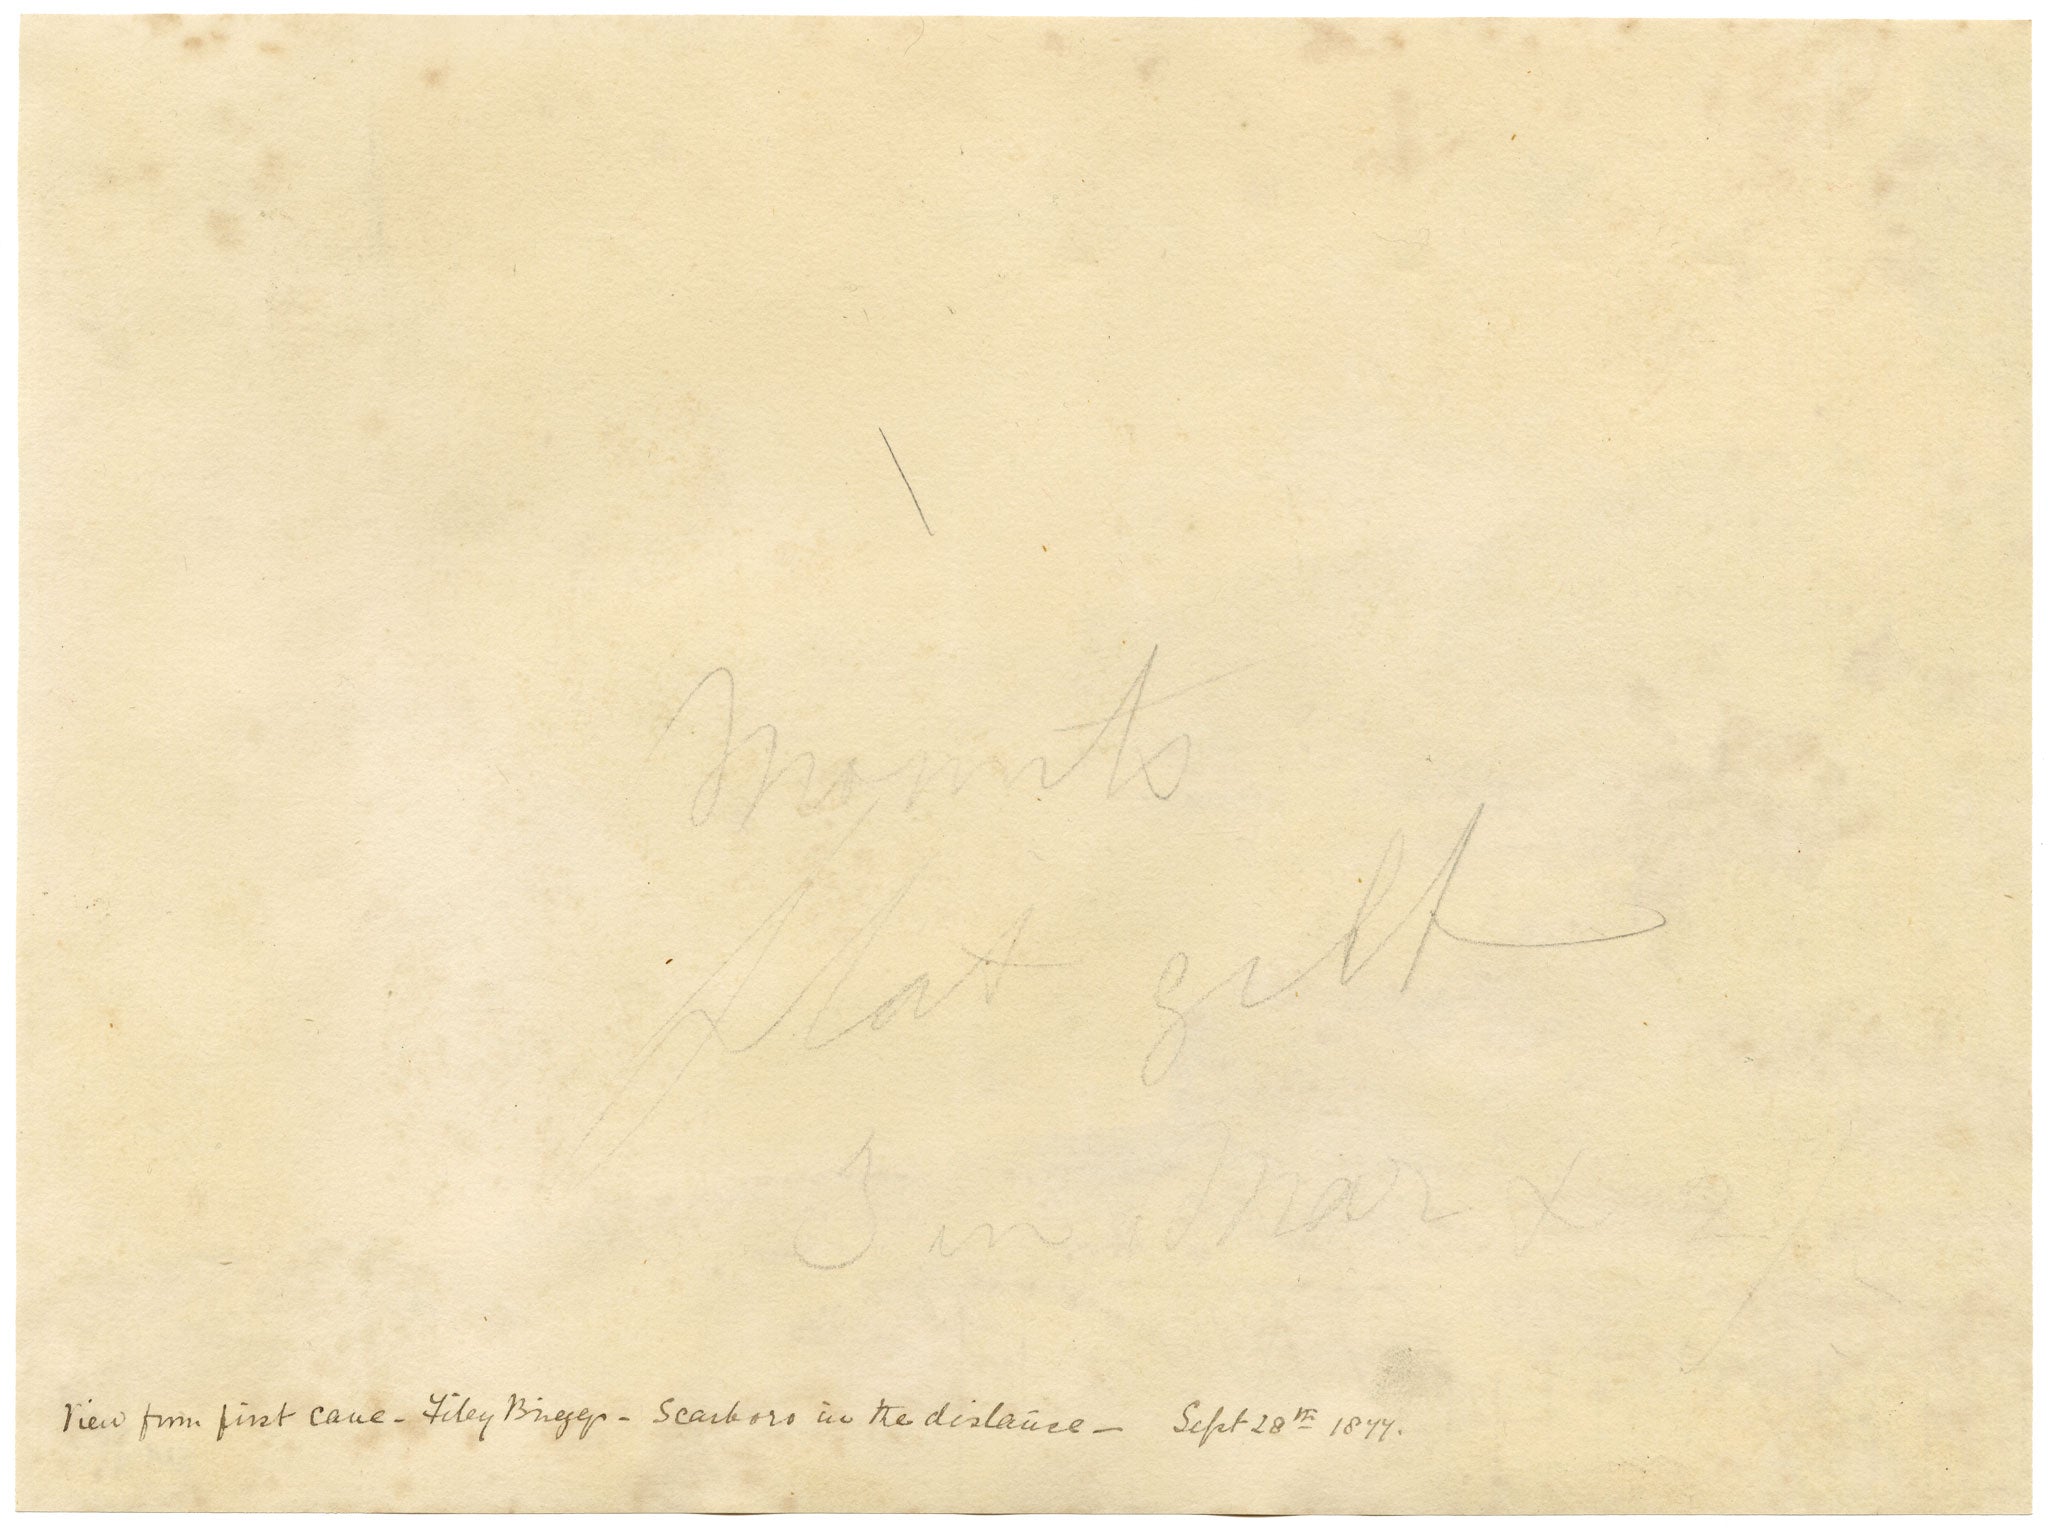 flat gilt
3 in Mar x
View from first cave - Filey Brigg - Scarboro in the distance - Sept 28th 1877.